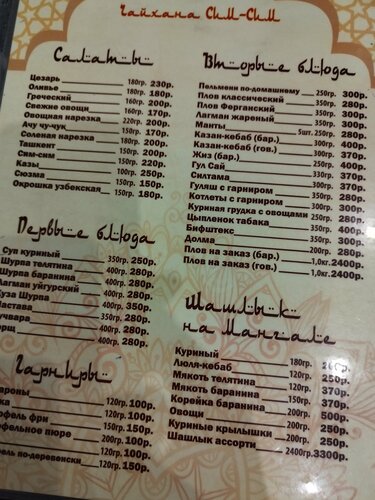 Чайхана Сим-Сим
Салаты
Цезарь 180гр. 230р.
Оливье 180гр. 180р.
Греческий 160гр. 200р.
Свежие овощи 160гр. 170р.
Овощная нарезка 220гр. 200р.
Ачу чу-чук 150гр. 170р.
Соленая нарезка 180гр. 200р.
Ташкент 150гр. 200р.
Сим-сим 150гр. 220р.
Казы 100гр. 250р.
Сюзма 150гр. 150р.
Окрошка узбекская 150гр. 180р.
Первые блюда
Суп куриный 350гр. 250р.
Шурпа телятина 400гр. 280р.
Шурпа баранина 400гр. 280р.
Лагман уйгурский 400гр. 280р.
уза Шурпа 400гр. 280р.
астава 400гр. 280р.
учвара 350гр. 250р.
орщ 400гр. 280р.
Гарниры
ароны 120гр. 100р.
ка 120гр. 100р.
офель фри 150гр. 150р.
офельное пюре 200гр. 150р.
120гр. 100р.
ель по-деревенски 120гр. 150р.
Вторые блюда
Пельмени по-домашнему 250гр. 300р.
Плов классический 350гр. 280р.
Плов Ферганский 350гр. 300р.
Лагман жареный 350гр. 300р.
Манты 5шт. 250гр. 280р.
Казан-кебаб (бар.) 300гр. 400р.
Казан-кебаб (гов.) 300гр. 370р.
Жиз (бар.) 250гр. 400р.
Гул Сай
Силтама 300гр. 370р.
Гуляш с гарниром 350гр. 300р.
Котлеты с гарниром 350гр. 280р.
Куриная грудка с овощами 250гр. 280р.
Цыпленок табака 350гр. 400р.
Бифштекс 350гр. 300р.
Долма 200гр. 280р.
Плов на заказ (бар.) 1,0кг. 2500р.
Плов на заказ (гов.) 1,0кг. 2400р.
Шашлык
на Мангале
Куриный 180гр. 200р.
Люля-кебаб 120гр. 250р.
Мякоть телятина 150гр. 370р.
Мякоть баранина 150гр. 370р.
Корейка баранина 200гр. 500р.
Овощи 200гр. 250р.
Куриные крылышки 200гр. 250р.
Шашлык ассорти 2400гр. 3300р.